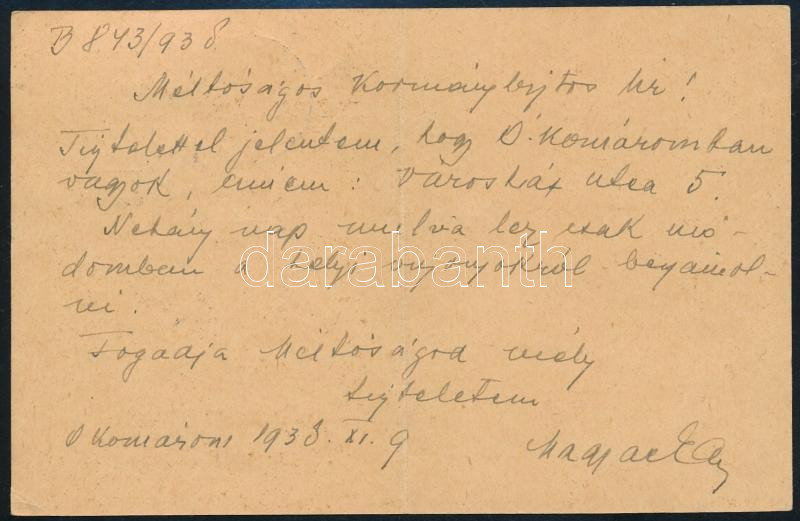 B 843/938
Méltóságos Kormánybiztos Úr!
Tisztelettel jelentem, hogy Ó. Komáromban
vagyok, címem: Városház utca 5.
Néhány nap mulva lez csak mó-
domban a helyi viszonyokról beszámol-
ni.
Fogadja Méltóságod mély
tiszteletem
Ó Komárom 1938. XI. 9
Magyar
darabanth.